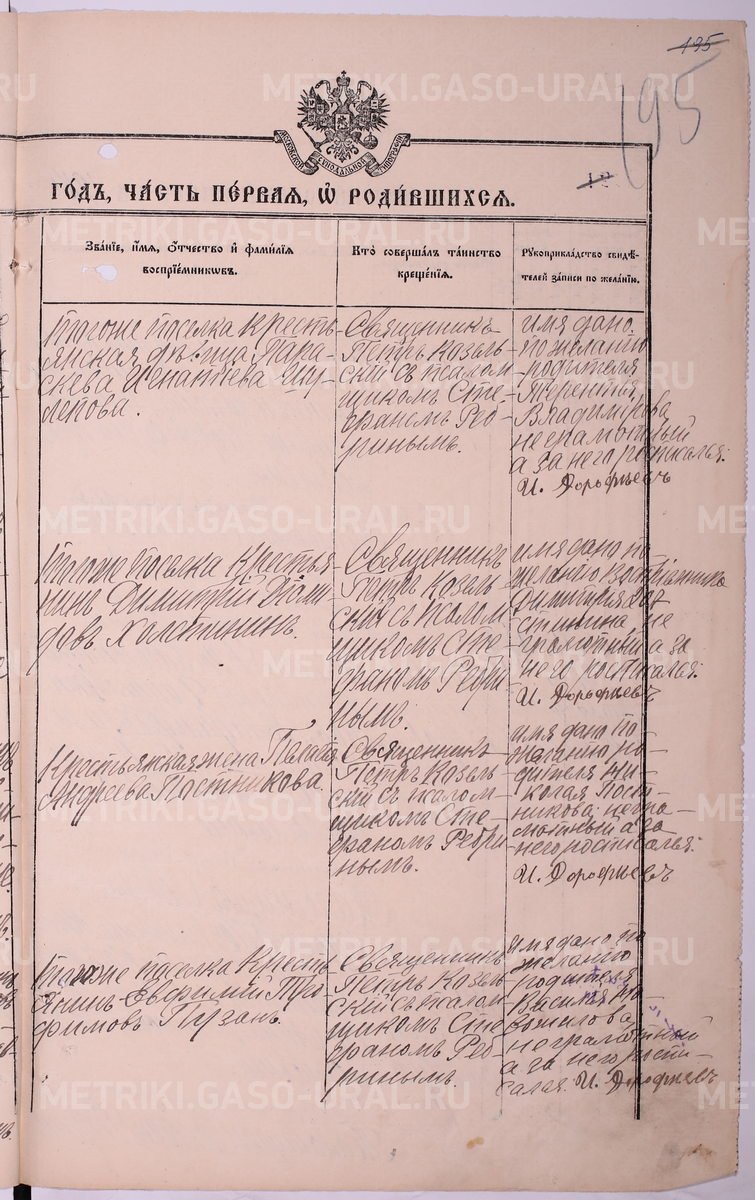 195
195
МОСКОВСКОЙ СѴНОДАЛЬНОЙ ТИПОГРАФІИ
ГОДЪ, ЧАСТЬ ПЕРВАЯ, Ѡ РОДИВШИХСЯ.
Званіе, имя, отчество и фамилія
воспріемниковъ.
Кто совершалъ таинство
крещенія.
Рукоприкладство свидѣ-
телей записи по желанію.
Тогоже поселка Кресть-
янская дѣвица Пара-
скева Игнатьева Щу-
лепова.
Священникъ
Петръ Козель-
скій съ псалом-
щикомъ Сте-
фаномъ Реб-
ринымъ.
имя дано
по желанію
родителя
Терентія
Владимірова
неграмотный
а за него росписался:
И. Дорофѣевъ
Тогоже поселка Крестья-
нинъ Димитрій
Холстининъ.
Священникъ
Петръ Козель-
скій съ псалом-
щикомъ Сте-
фаномъ Ребри-
нымъ.
имя дано по
желанію Воспріемника
Димитрія
не
грамотный а за
него росписался:
И. Дорофѣевъ
Крестьянская жена Пелагія
Андреева Постникова.
Священникъ
Петръ Козель-
скій съ псалом-
щикомъ Сте-
фаномъ Ребри-
нымъ.
имя дано по
желанію ро-
дителя Ни-
колая Пост-
никова негра-
мотный а за
него росписался:
И. Дорофѣевъ
Тогоже поселка Кресть-
янинъ Евфимій Тро-
фимовъ Пузанъ.
Священникъ
Петръ Козель-
скій съ псалом-
щикомъ Сте-
фаномъ Реб-
ринымъ.
имя дано по
желанію
родителя
Василія
неграмотный
а за него роспи-
сался: И. Дорофѣевъ
METRIKI.GASO-URAL.RU